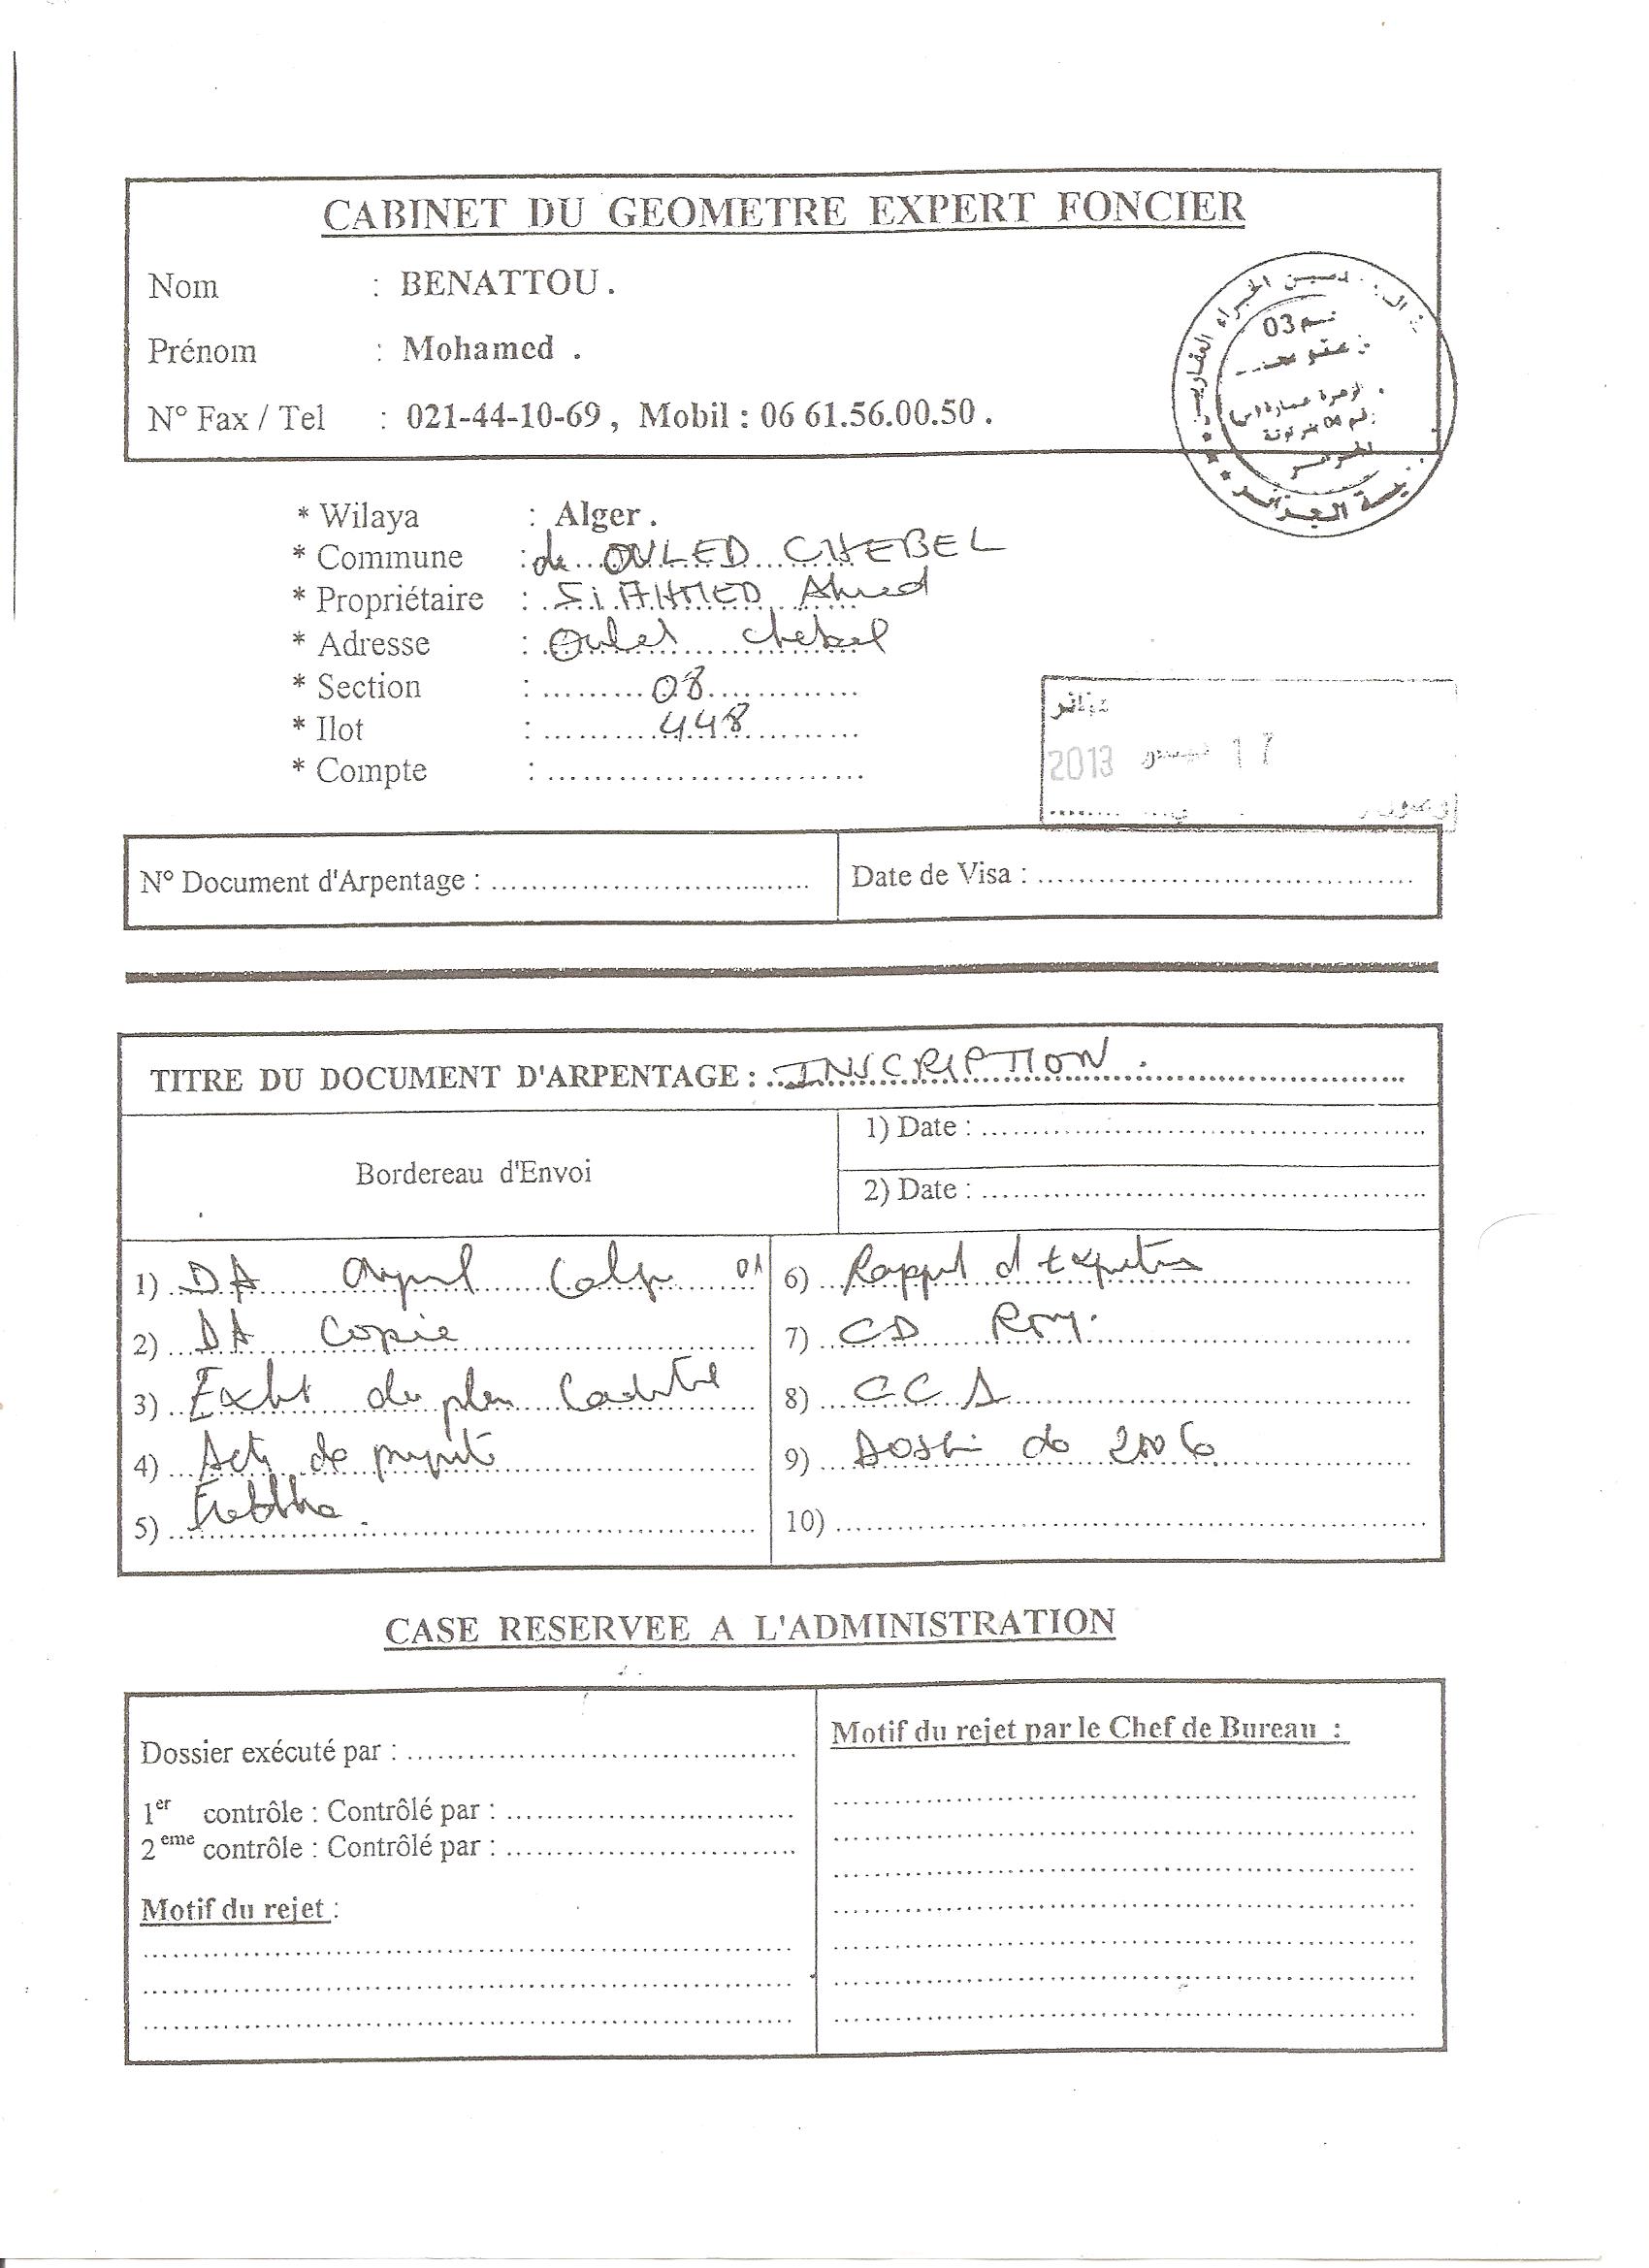 CABINET DU GEOMETRE EXPERT FONCIER
Nom : BENATTOU .
Prénom : Mohamed .
N° Fax / Tel : 021-44-10-69 , Mobil : 06 61.56.00.50 .
03
* Wilaya : Alger .
* Commune : de OULED CHEBEL
* Propriétaire : Si AHMED Ahmed
* Adresse : Ouled chebel
* Section : 08
* Ilot : 448
* Compte :
2013 17
N° Document d'Arpentage :
Date de Visa :
TITRE DU DOCUMENT D'ARPENTAGE : INSCRIPTION .
Bordereau d'Envoi
1) Date :
2) Date :
1) DA 01
2) DA Copie
3) du plan
4) Acte de
5)
6) Rapport d'
7) CD
8) CC
9) de 2006
10)
CASE RESERVEE A L'ADMINISTRATION
Dossier exécuté par :
1er contrôle : Contrôlé par :
2eme contrôle : Contrôlé par :
Motif du rejet :
Motif du rejet par le Chef de Bureau :